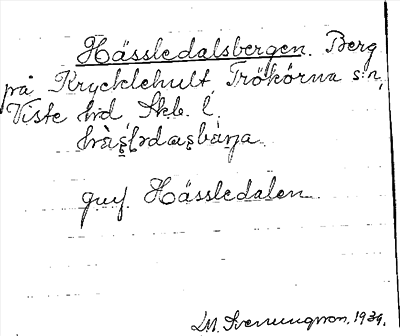 Hässledalsbergen. Berg
på Krycklehult, Trökörna s:n,
Viste hd Skb. l.
Hässledalen
L.M. Svenungsson, 1934.